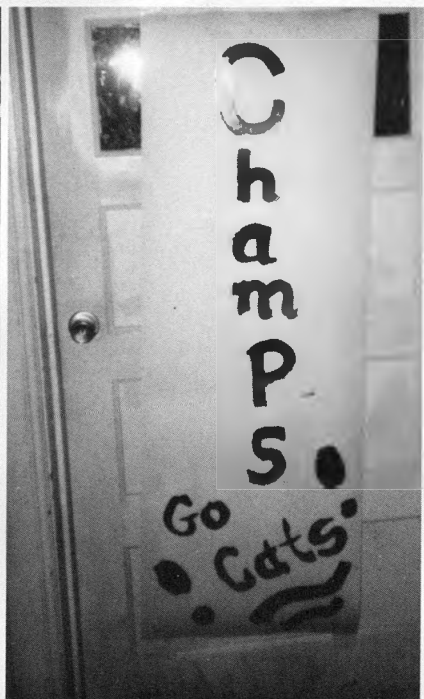 ChamPS
Go
Cats